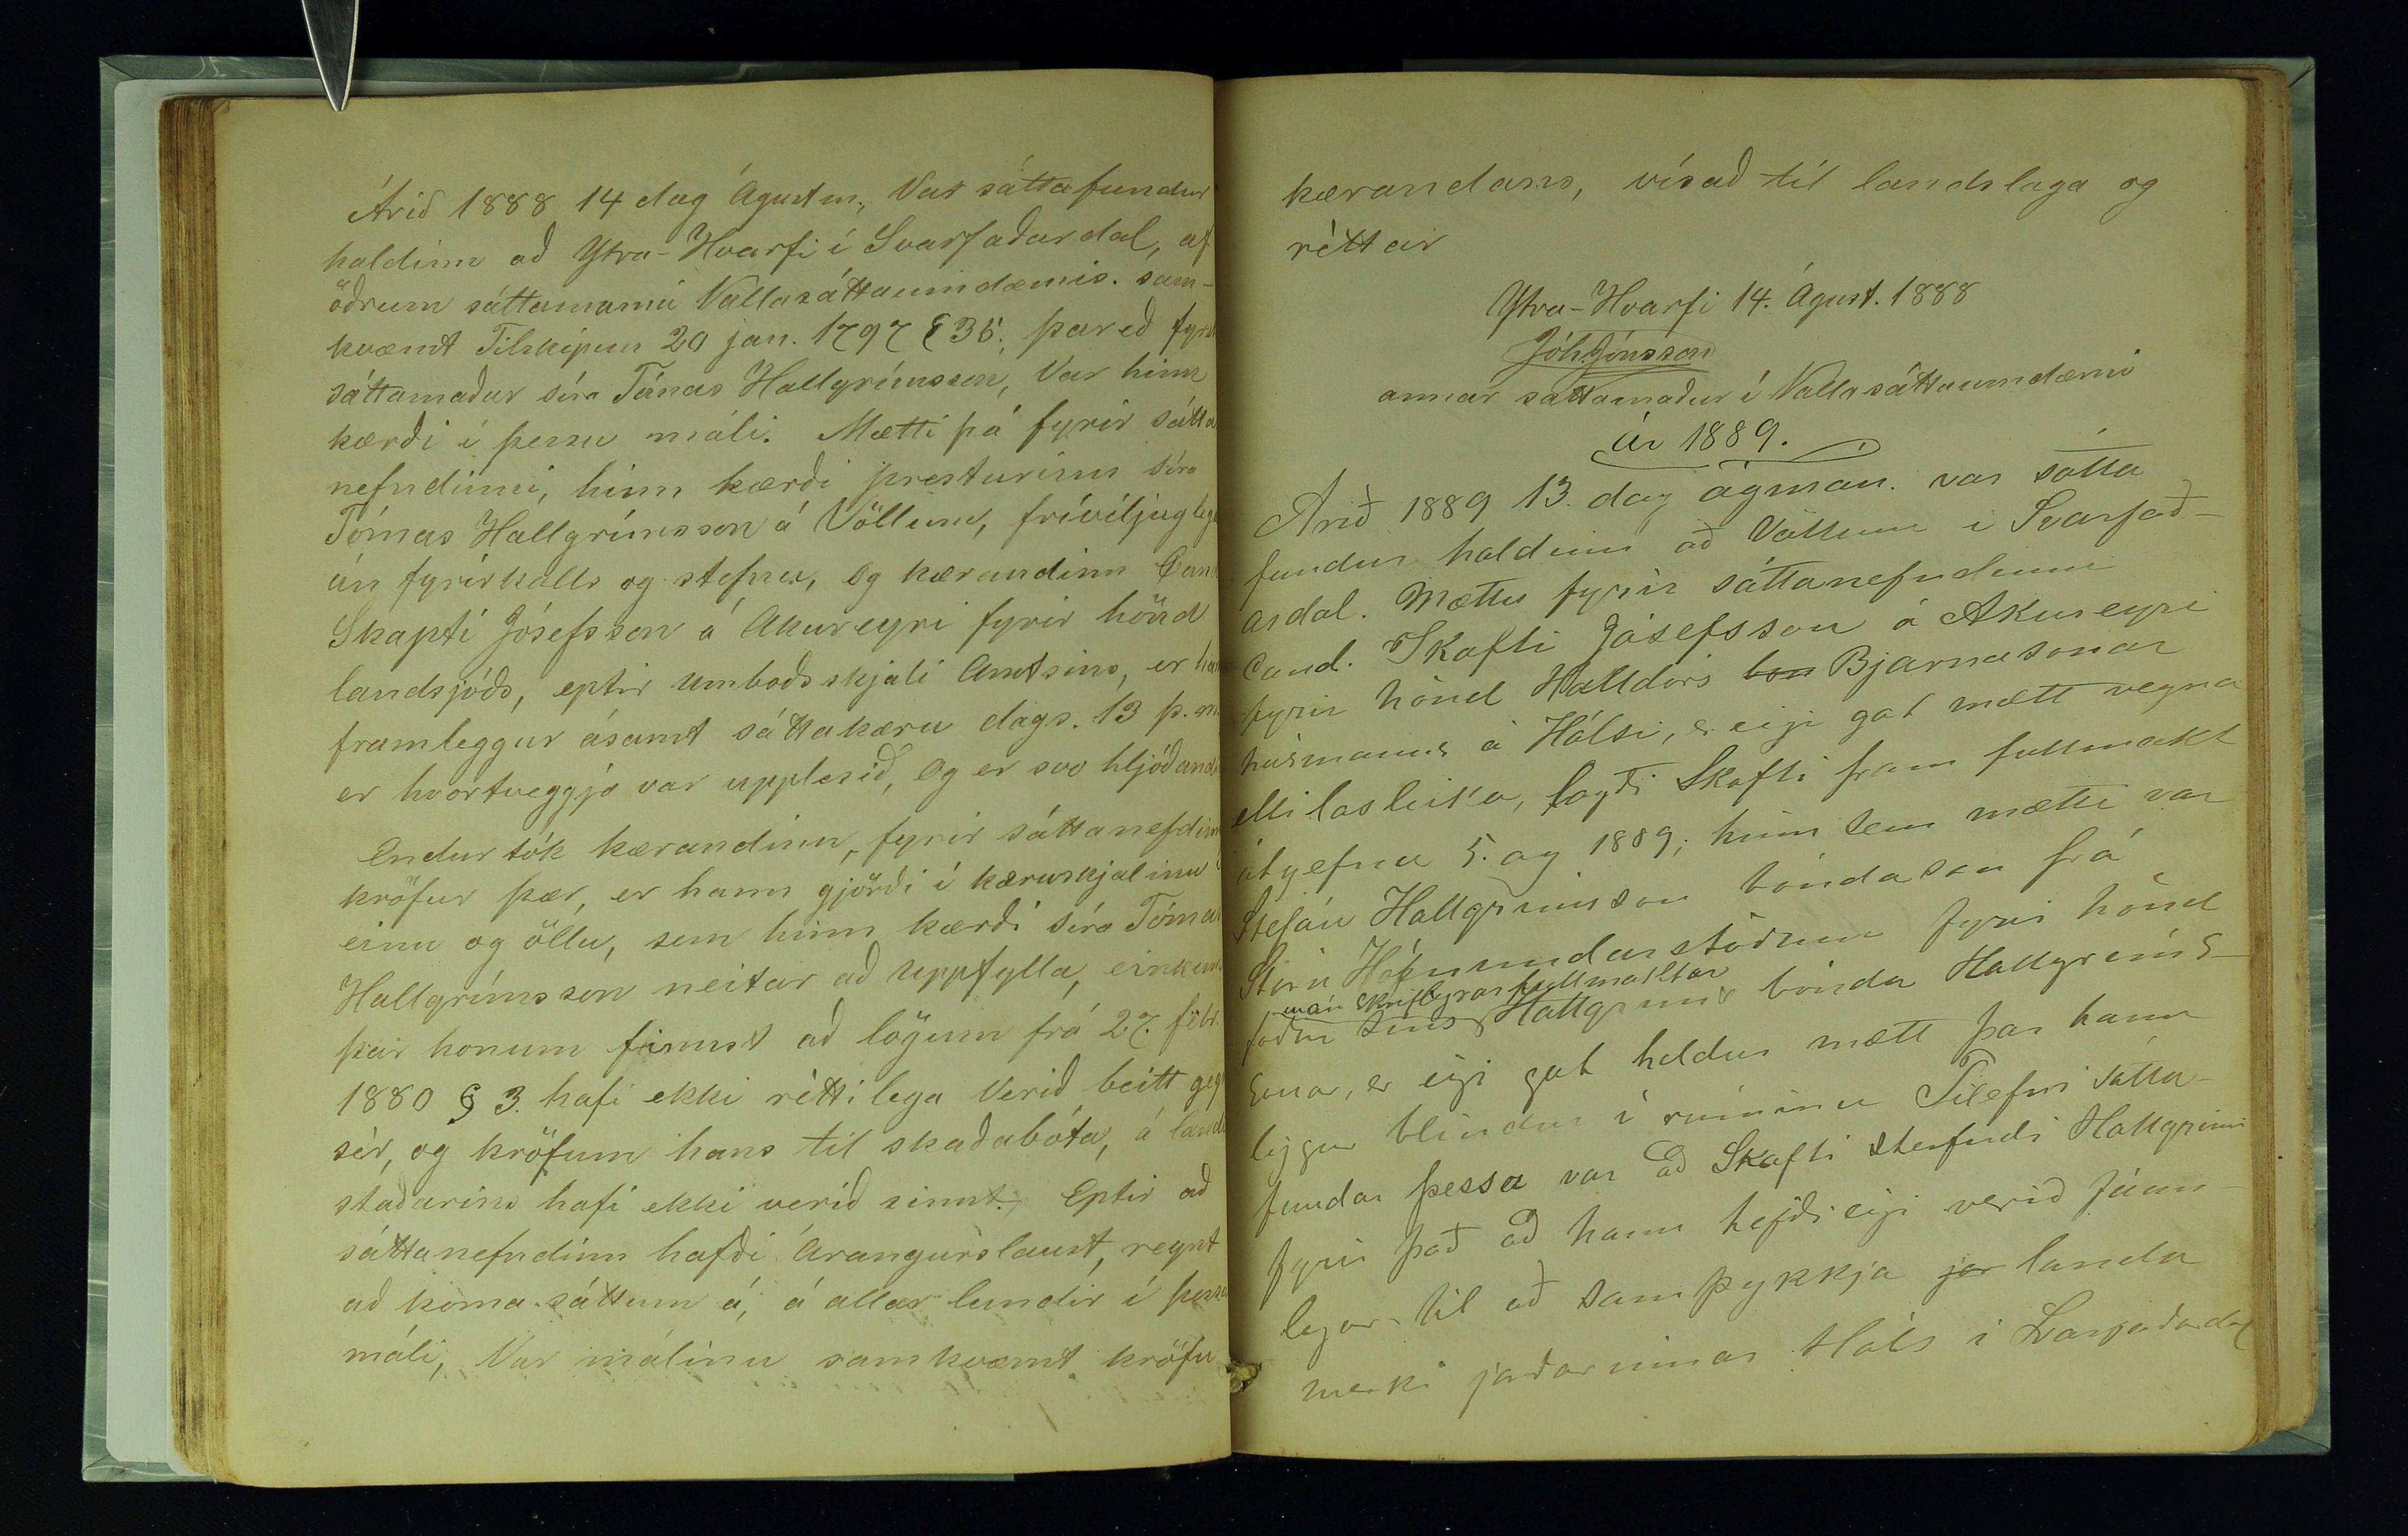 Árið 1888 14 dag Ágústm., Var sáttafundur
haldinn að Ytra-Hvarfi í Svarfaðardal, af
öðrum sáttamanni Vallasáttaumdæmis. sam-
kvæmt Tilskipun 20 jan. 1797 § 35., þareð fyrst
sáttamaður síra Tómas Hallgrímsson, Var hinn
kærði í þessu máli. Mætti þá fyrir sátta
nefndinni, hinn kærði presturinn síra
Tómas Hallgrímsson á Völlum, fríviljugleg
án fyrirkalls og stefnu, og kærandinn Cand
Skapti Jósefsson á Akureyri fyrir hönd
landsjóðs, eptir umboðsskjali Amtsins, er han
framleggur ásamt sáttakæru dags. 13 þ. m.
er hvortveggja var upplesið, og er svo hljóðand
Endurtók kærandinn, fyrir sáttanefdinn
kröfur þær, er hann gjörði í kæruskjalinu
einu og öllu, sem hinn kærði síra Tómas
Hallgrímsson neitar að uppfylla, einkum
þar honum finnst að lögum frá 27. febr.
1880 § 3. hafi ekki réttilega Verið beitt geg
sér, og kröfum hans til skaðabóta, á land
staðarins hafi ekki verið sinnt. Eptir að
sáttanefndinn hafði Árangurslaust, reynt
að koma sáttum á, á allar lundir í þessu
máli, Var málinu samkvæmt kröfu
kærandans, vísað til landslaga og
réttar
Ytra-Hvarfi 14. Ágúst. 1888
Jóh. Jónsson
annar sáttamaður í Vallasáttaumdæmi
ár 1889.
Árið 1889 13. dag ágmán. var sátta
fundur haldinn að Völlum í Svarfað-
ardal. Mættu fyrir sáttanefndinni
Cand. Skafti Jósefsson á Akureyri
fyrir hönd Halldórs bon Bjarnasonar
húsmanns á Hálsi, er eigi gat mætt vegna
ellilasleika, lagði Skafti fram fullmakt
útgefna 5. ag 1889; hinn sem mætti var
Stefán Hallgrímsson bóndason frá
Stóru Hámundarstöðum fyrir hönd
án skriflegrar fullmaktar
föður síns Hallgríms bónda Hallgríms-
sonar, er eigi gat heldur mætt þar hann
liggur blindur í rúminu Tilefni sátta-
fundar þessa var að Skafti stefndi Hallgrími
fyrir það að hann hefði eigi verið fáan-
legur til að samþykkja jar landa
merki jarðarinnar Háls í Svarfaðardal